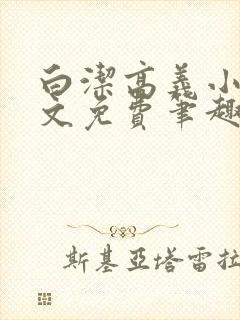 白潔高義小
文免費筆趣
斯基亞塔雷拉